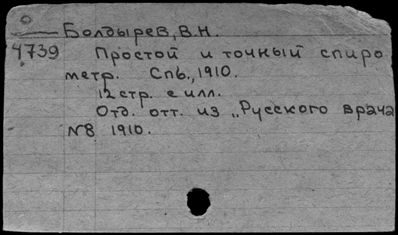 Болдырев, В.Н.
4739 Простой и точный спиро
метр. Спб., 1910.
12 стр. с илл.
Отд. отт. из „Русского врача
№8 1910.